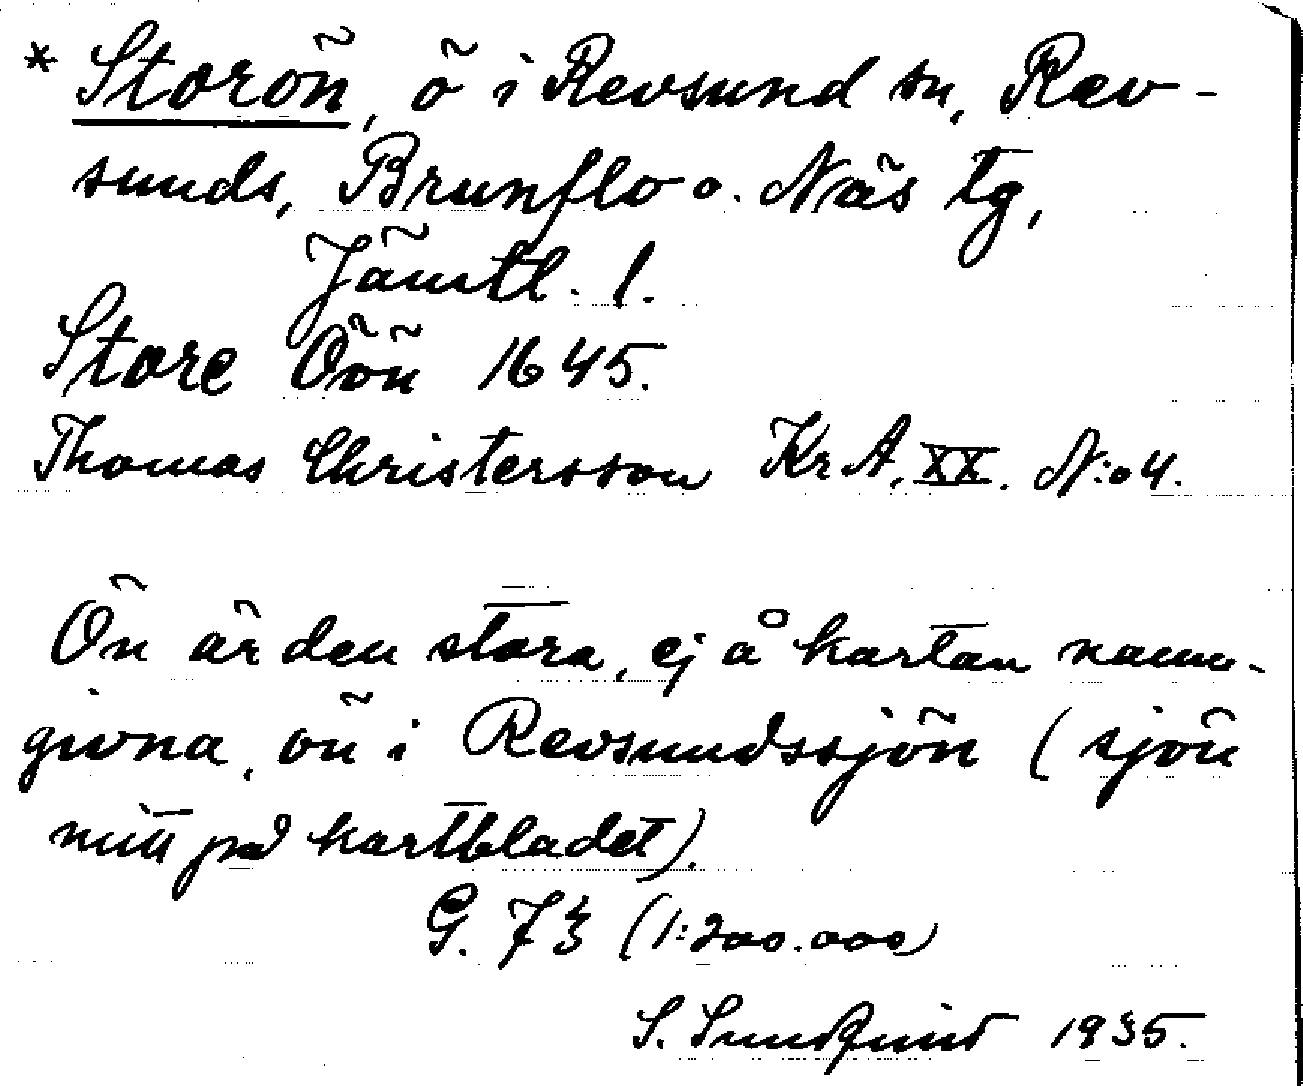 * Storön, ö i Revsund sn, Rev-
sunds, Brunflo o. Näs tg,
Jämtl. l.
Store Öön 1645.
Thomas Christersson Kr A, XX. N:o 4.
Ön är den stora, ej å kartan namn-
givna, ön i Revsundssjön (sjön
mitt på kartbladet).
G. 73 (1:200.000)
S. Sundquist 1935.